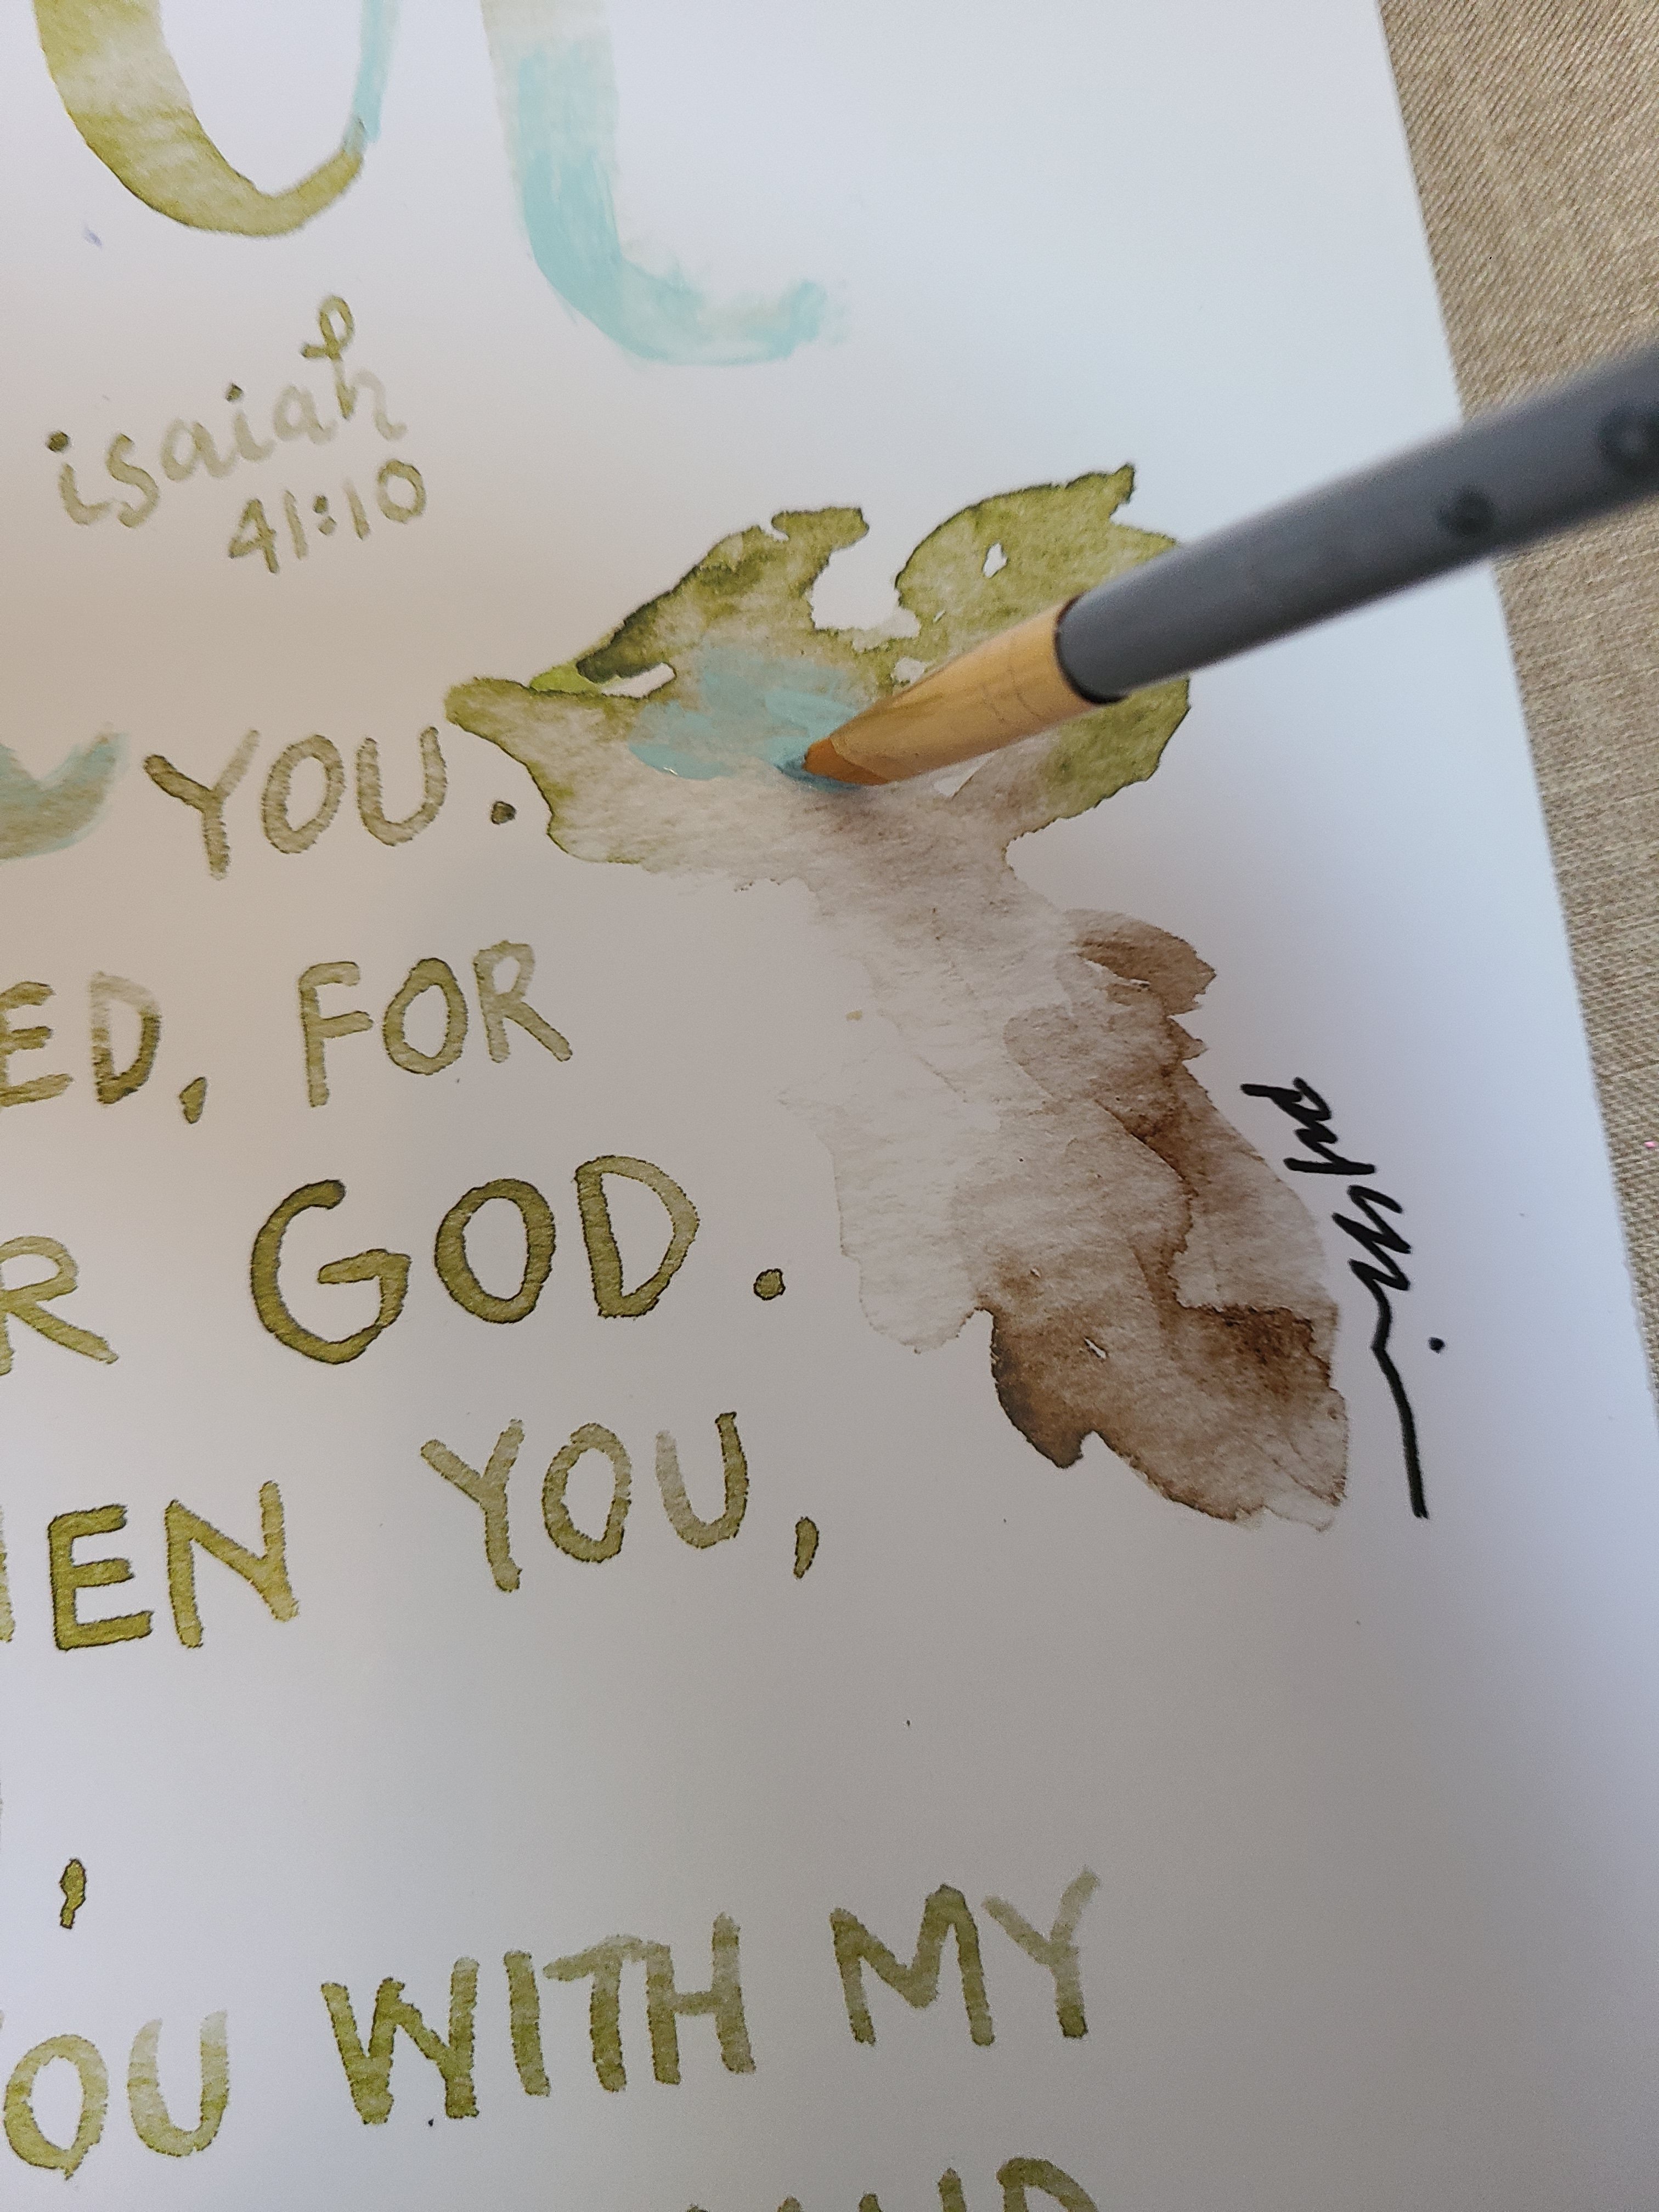 isaiah
41:10
YOU.
ED, FOR
R GOD.
EN YOU,
,
OU WITH MY